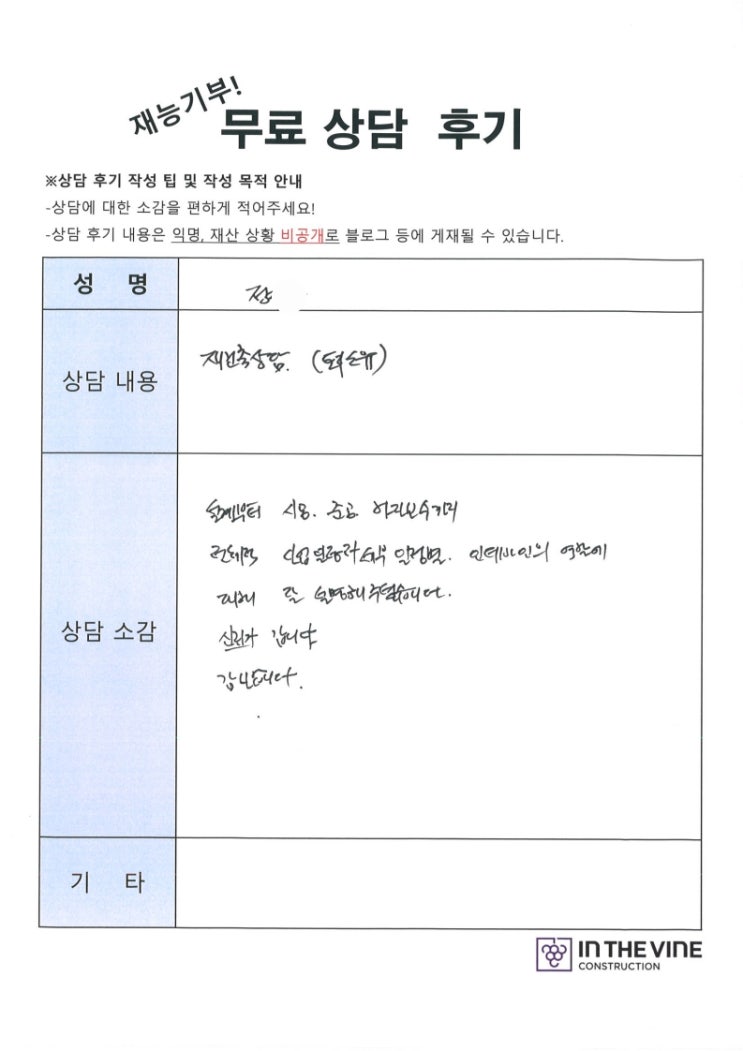 재능기부!
무료 상담 후기
※상담 후기 작성 팁 및 작성 목적 안내
-상담에 대한 소감을 편하게 적어주세요!
-상담 후기 내용은 익명, 재산 상황 비공개로 블로그 등에 게재될 수 있습니다.
성 명
장
상담 내용
재건축상담.
상담 소감
설계부터 시공. 준공 하자보수까지
전체적 일정별. 인더바인의 역할에
대해 잘 설명해주셨습니다.
신뢰가 갑니다
감사합니다.
기 타
IN THE VINE
CONSTRUCTION